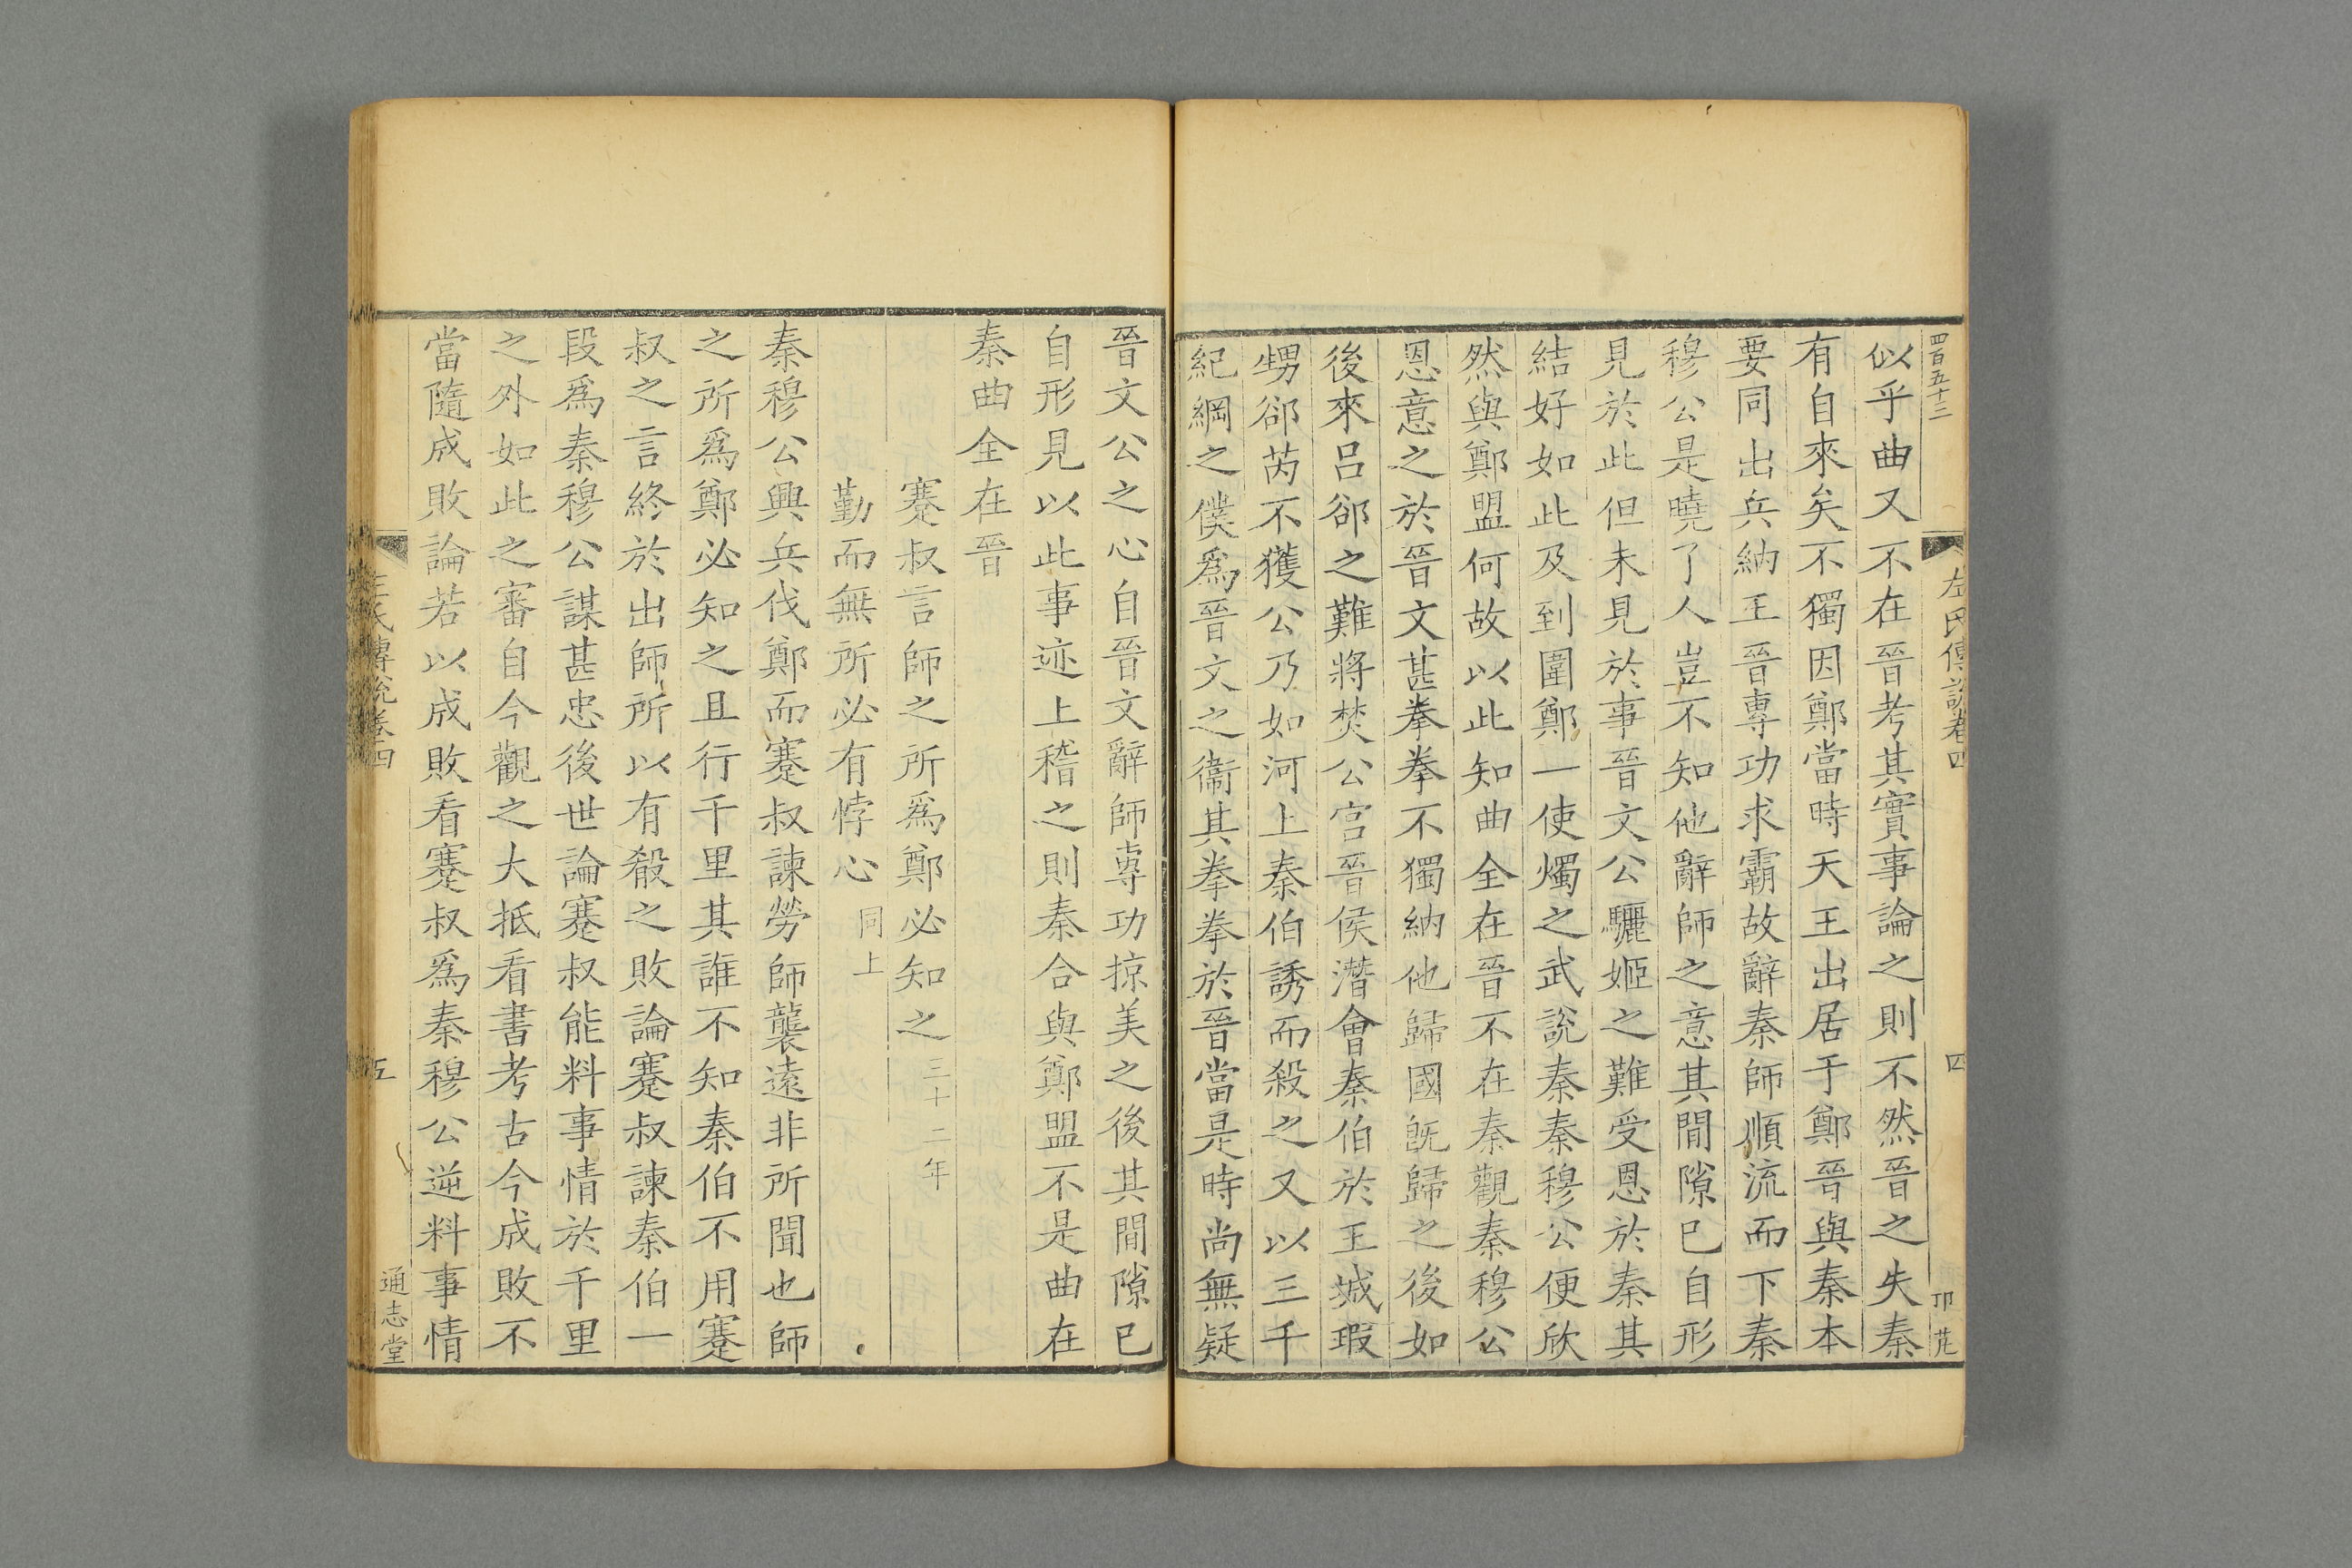 四百五十三
左氏傳說卷四
四
卭芘
似乎曲又不在晉考其實事論之則不然晉之失秦
有自來矣不獨因鄭當時天王出居于鄭晉與秦本
要同出兵納王晉專功求霸故辭秦師順流而下秦
穆公是曉了人豈不知他辭師之意其間隙已自形
見於此但未見於事晉文公驪姬之難受恩於秦其
結好如此及到圍鄭一使燭之武說秦秦穆公便欣
然與鄭盟何故以此知曲全在晉不在秦觀秦穆公
恩意之於晉文甚拳拳不獨納他歸國旣歸之後如
後來呂郤之難將焚公宮晉侯潛會秦伯於王城瑕
甥郤芮不獲公乃如河上秦伯誘而殺之又以三千
紀綱之僕爲晉文之衞其拳拳於晉當是時尚無疑
晉文公之心自晉文辭師專功掠美之後其間隙已
自形見以此事迹上稽之則秦合與鄭盟不是曲在
秦曲全在晉
蹇叔言師之所爲鄭必知之三十二年
勤而無所必有悖心同上
秦穆公興兵伐鄭而蹇叔諫勞師襲遠非所聞也師
之所爲鄭必知之且行千里其誰不知秦伯不用蹇
叔之言終於出師所以有殽之敗論蹇叔諫秦伯一
段爲秦穆公謀甚忠後世論蹇叔能料事情於千里
之外如此之審自今觀之大抵看書考古今成敗不
當隨成敗論若以成敗看蹇叔爲秦穆公逆料事情
左氏傳說卷四
五
通志堂